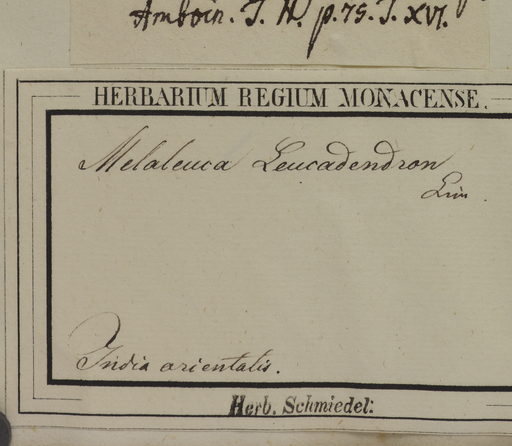 Amboin. T. II. p. 75. T. XVI.
HERBARIUM REGIUM MONACENSE.
Melaleuca Leucadendron
Lin.
India orientalis.
Herb. Schmiedel: